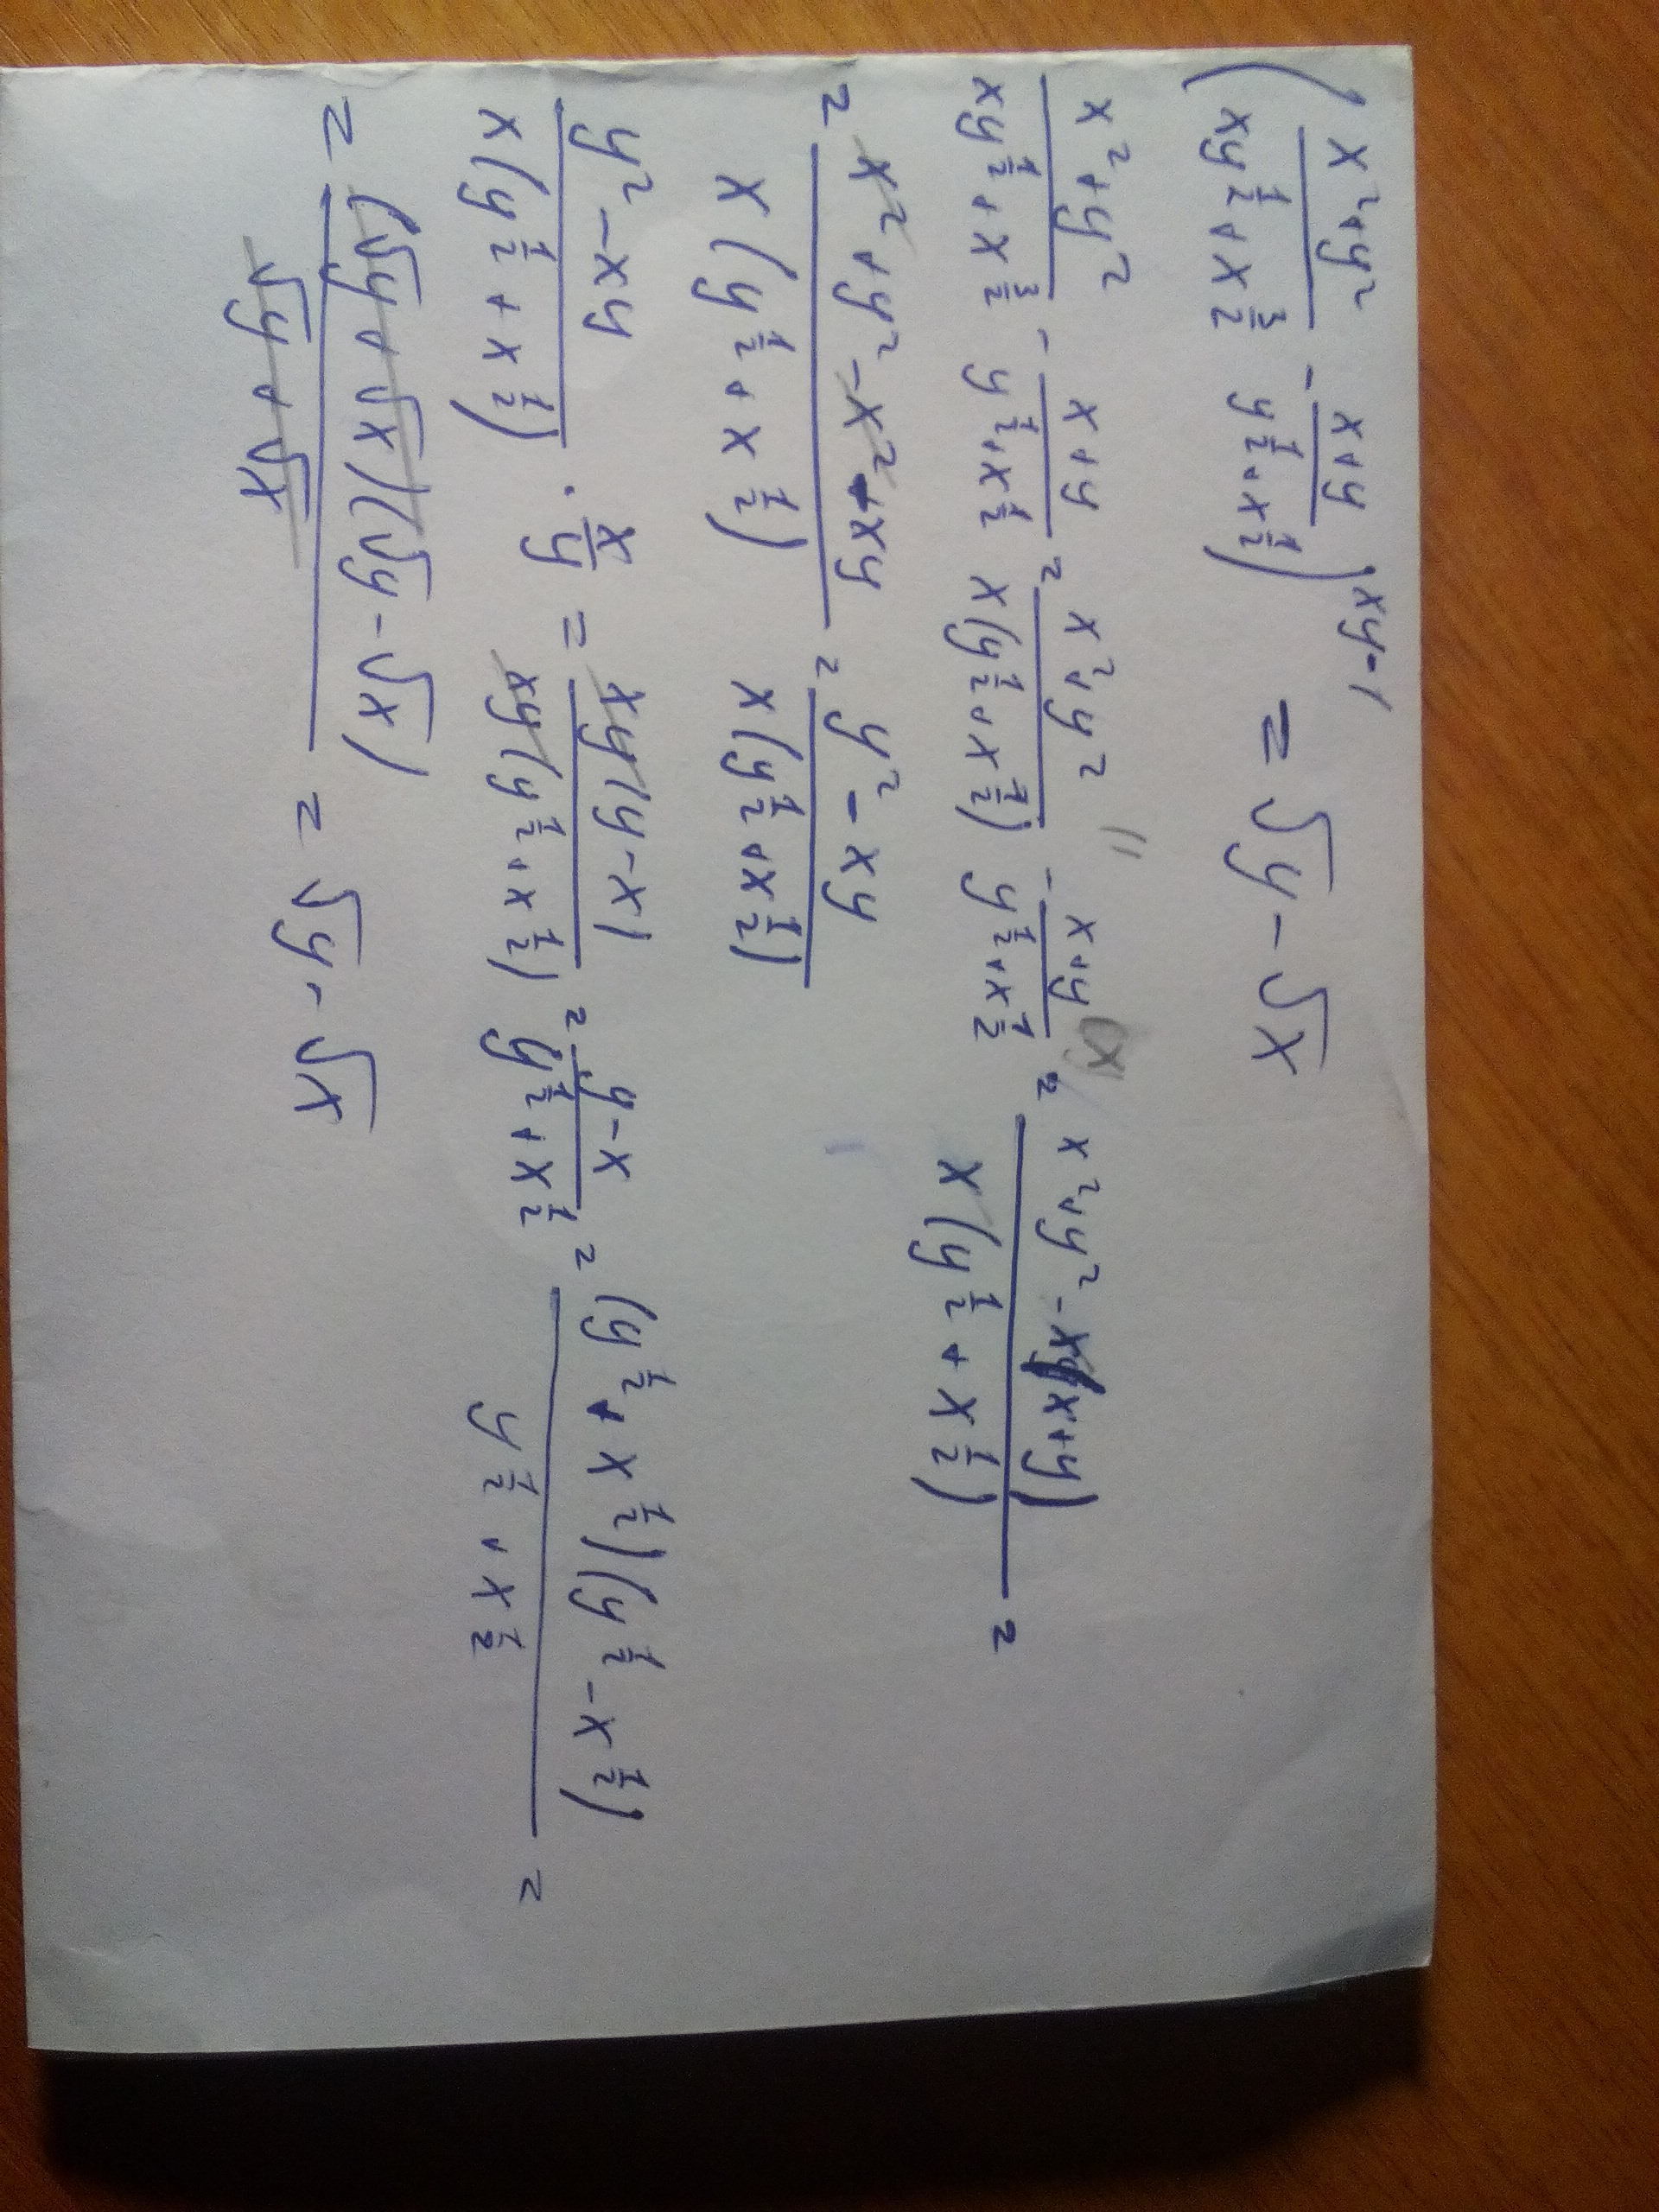 (x²+y² / xy^½ + x^3/2 - x+y / y^½ + x^½) xy-1 = √y - √x
x²+y² / xy^½ + x^3/2 - x+y / y^½ + x^½ = x²+y² / x(y^½ + x^½) - x+y / y^½ + x^½ (x = x²+y² - x(x+y) / x(y^½ + x^½) =
= x²+y² - x² + xy / x(y^½ + x^½) = y² - xy / x(y^½ + x^½)
y² - xy / x(y^½ + x^½) · x/y = xy(y-x) / xy(y^½ + x^½) = y-x / y^½ + x^½ = (y^½ + x^½)(y^½ - x^½) / y^½ + x^½ =
= (√y + √x)(√y - √x) / √y + √x = √y - √x